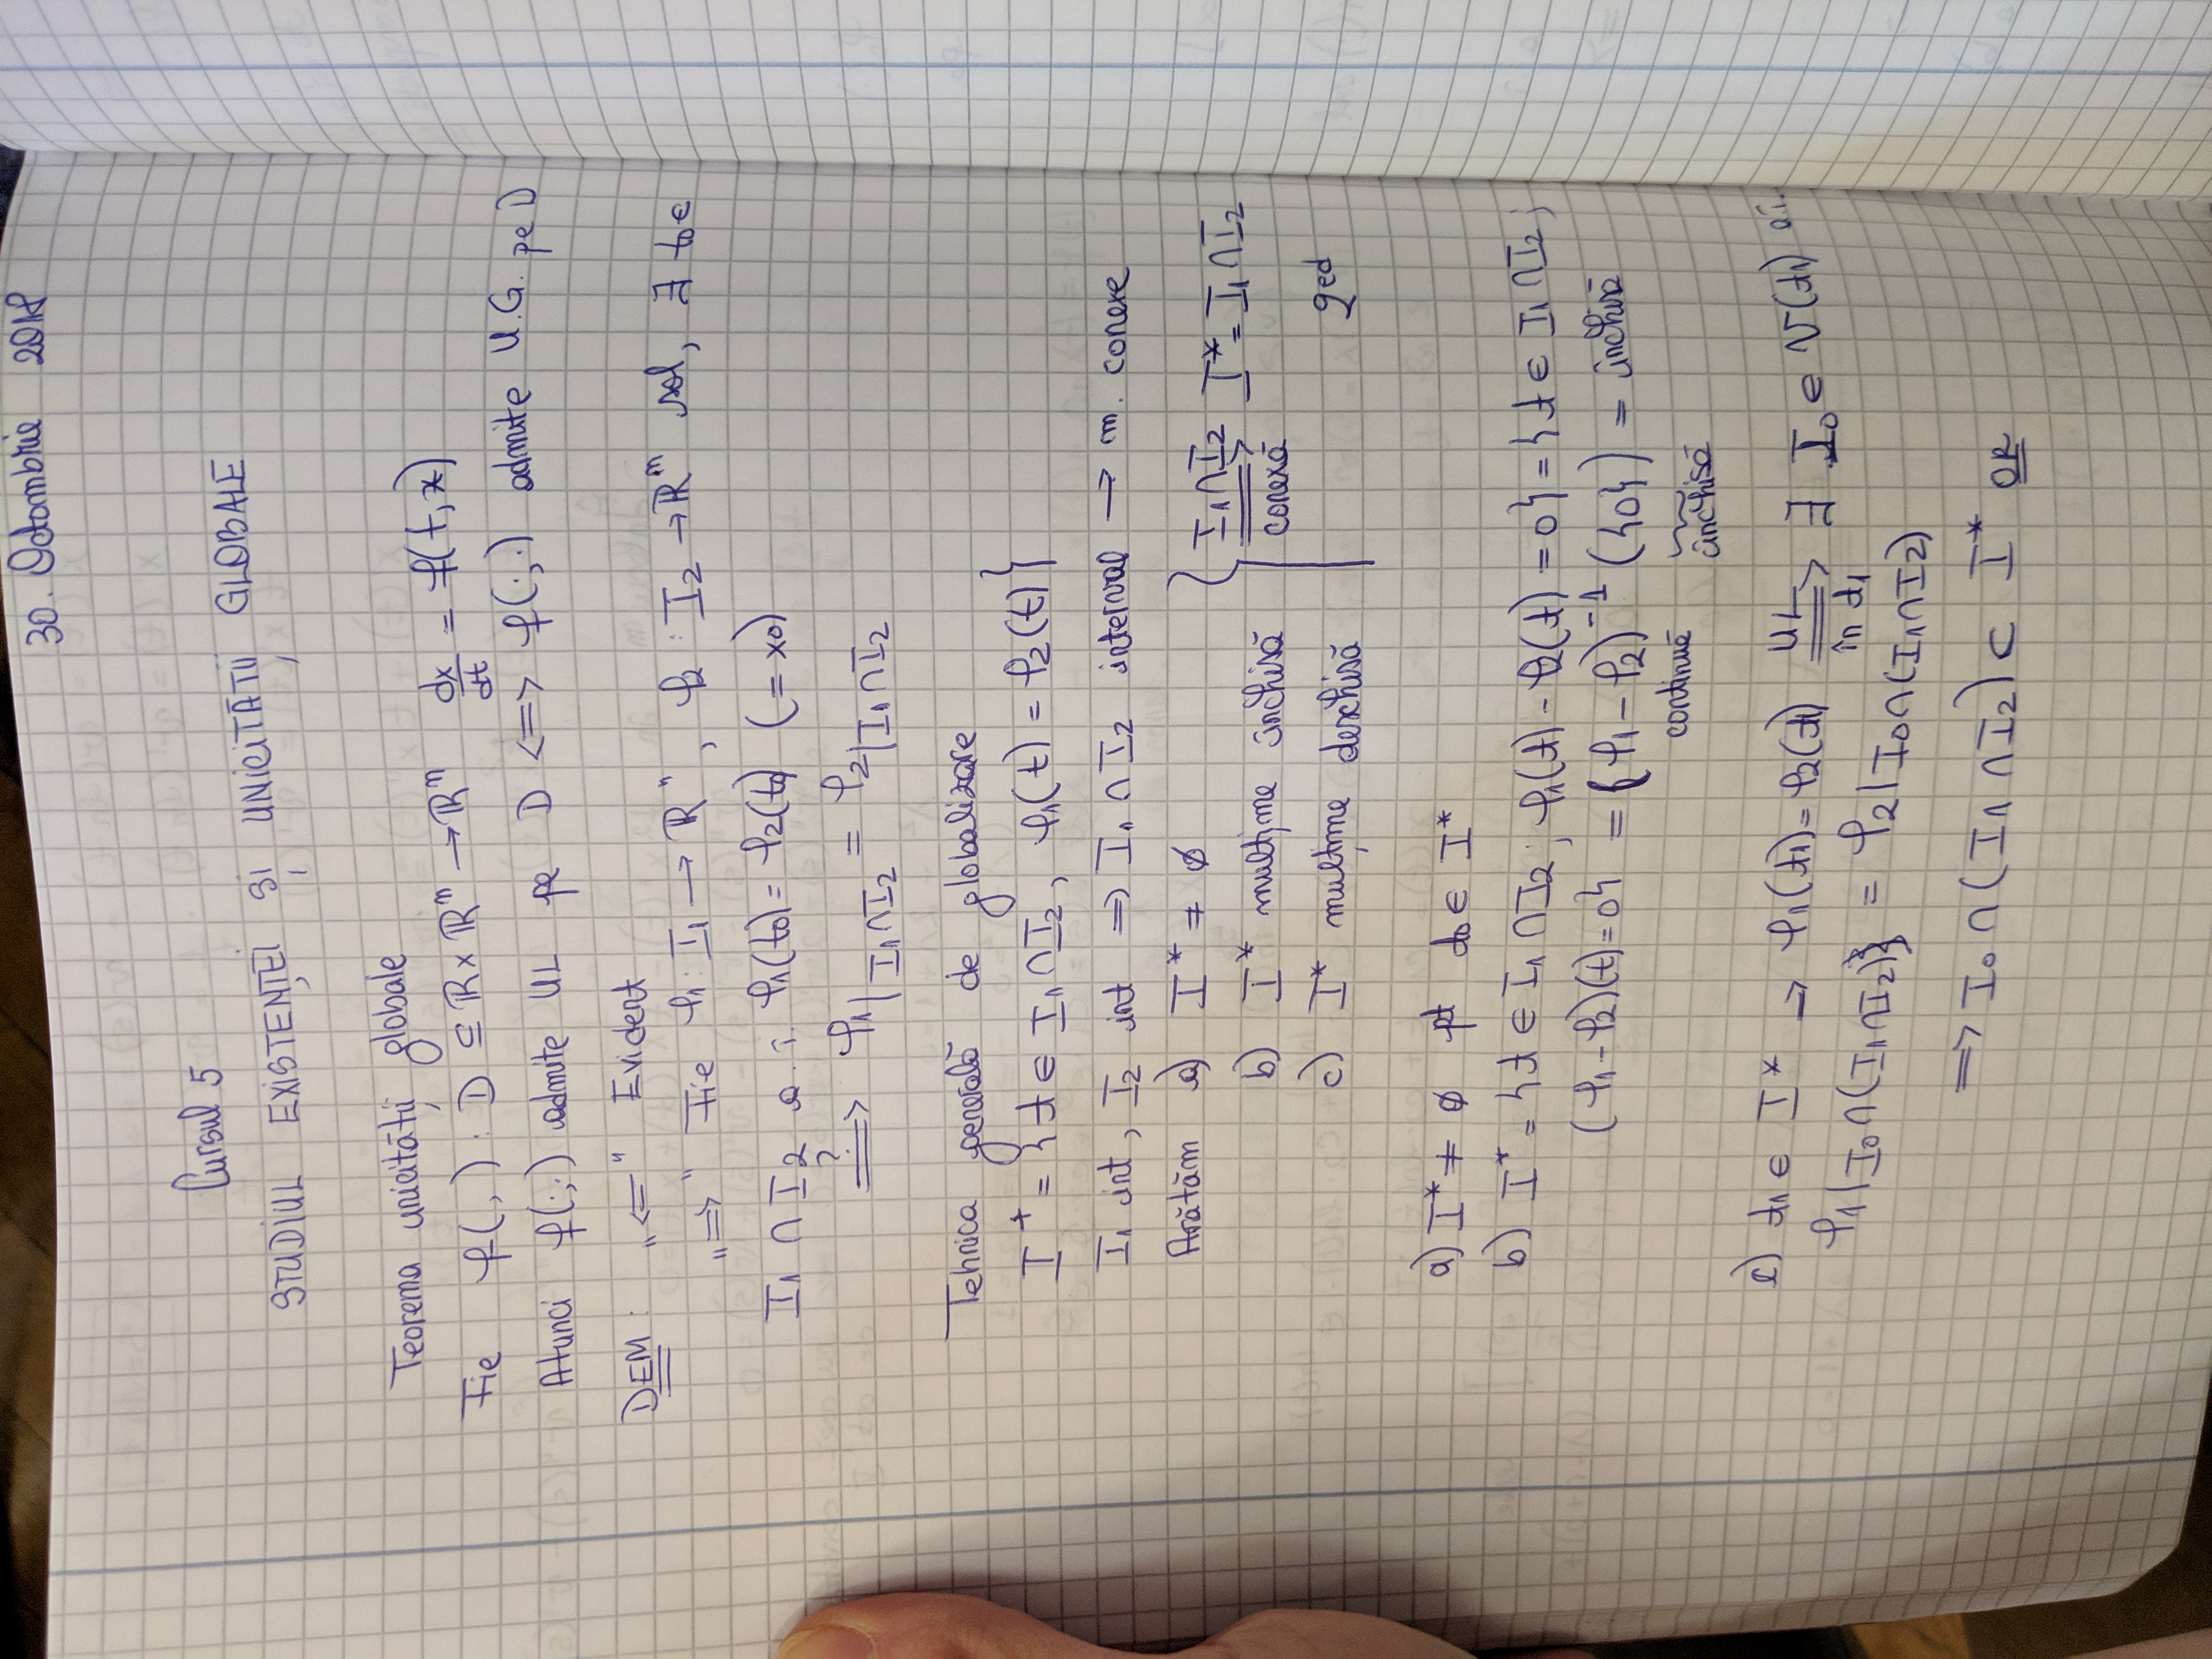 30. Octombrie 2018
Cursul 5
STUDIUL EXISTENȚEI ȘI UNICITĂȚII GLOBALE
Teorema unicității globale
Fie f(,) : D ⊆ ℝ × ℝⁿ → ℝⁿ dx/dt = f(t,x)
Atunci f(·,·) admite UL pe D <=> f(·,·) admite U.G. pe D
DEM: „<=" Evident
„=>" Fie φ₁ : I₁ → ℝⁿ, φ₂ : I₂ → ℝⁿ sol, ∃ t₀ ∈
I₁ ∩ I₂ a. î. φ₁(t₀) = φ₂(t₀) (= x₀)
?=> φ₁|I₁∩I₂ = φ₂|I₁∩I₂
Tehnica generală de globalizare
I⁺ = {t ∈ I₁∩I₂, φ₁(t) = φ₂(t)}
I₁ int, I₂ int => I₁ ∩ I₂ interval → m. conexe
Arătăm a) I* ≠ ∅
b) I* mulțime închisă } I₁∩I₂ => conexă I* = I₁∩I₂
c) I* mulțime deschisă qed
a) I* ≠ ∅ pt t₀ ∈ I*
b) I* = {t ∈ I₁∩I₂; φ₁(t) - φ₂(t) = 0} = {t ∈ I₁∩I₂;
(φ₁-φ₂)(t) = 0} = (φ₁-φ₂)⁻¹ ({0}) = închisă
continuă închisă
c) t₁ ∈ I* → φ₁(t₁) = φ₂(t₁) UL => în t₁ ∃ I₀ ∈ V(t₁) a.î.
φ₁|I₀∩(I₁∩I₂)} = φ₂|I₀∩(I₁∩I₂)
=> I₀ ∩ (I₁∩I₂) ⊂ I* OK